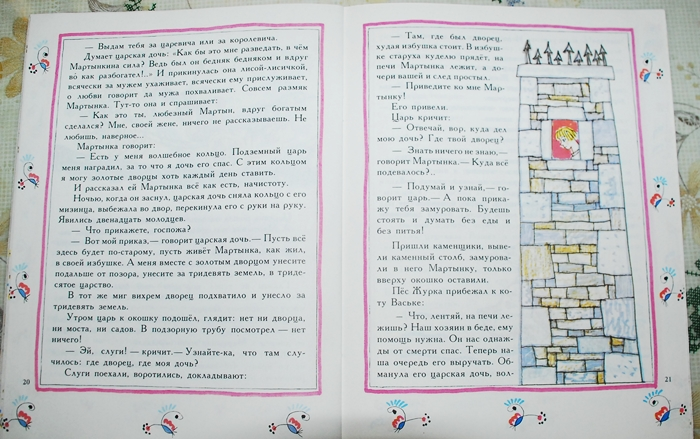 — Выдам тебя за царевича или за королевича.
Думает царская дочь: «Как бы это мне разведать, в чём
Мартынкина сила? Ведь был он бедняк бедняком и вдруг
во как разбогател!..» И прикинулась она лисой-лисичкой,
всячески за мужем ухаживает, всячески ему прислуживает,
о любви говорит да мужа похваливает. Совсем размяк
Мартынка. Тут-то она и спрашивает:
— Как это ты, любезный Мартын, вдруг богатым
сделался? Мне, своей жене, ничего не рассказываешь. Не
любишь, наверное...
Мартынка говорит:
— Есть у меня волшебное кольцо. Подземный царь
меня наградил, за то что я дочь его спас. С этим кольцом
я могу золотые дворцы хоть каждый день ставить.
И рассказал ей Мартынка всё как есть, начистоту.
Ночью, когда он заснул, царская дочь сняла кольцо с его
мизинца, выбежала во двор, перекинула его с руки на руку.
Явились двенадцать молодцев.
— Что прикажете, госпожа?
— Вот мой приказ,— говорит царская дочь.— Пусть всё
здесь будет по-старому, пусть живёт Мартынка, как жил,
в своей избушке. А меня вместе с золотым дворцом унесите
подальше от позора, унесите за тридевять земель, в триде-
сятое царство.
В тот же миг вихрем дворец подхватило и унесло за
тридевять земель.
Утром царь к окошку подошёл, глядит: нет ни дворца,
ни моста, ни садов. В подзорную трубу посмотрел — нет
ничего!
— Эй, слуги! — кричит.— Узнайте-ка, что там слу-
чилось: где дворец, где моя дочь?
Слуги поехали, воротились, докладывают:
20
— Там, где был дворец,
худая избушка стоит. В избуш-
ке старуха куделю прядёт, на
печи Мартынка лежит, а до-
чери вашей и след простыл.
— Приведите ко мне Мар-
тынку!
Его привели.
Царь кричит:
— Отвечай, вор, куда дел
мою дочь? Где твой дворец?
— Знать ничего не знаю,—
говорит Мартынка.— Куда всё
подевалось?..
— Подумай и узнай,— го-
ворит царь.— А пока прика-
жу тебя замуровать. Будешь
стоять и думать без еды и
без питья!
Пришли каменщики, выве-
ли каменный столб, замурова-
ли в него Мартынку, только
вверху окошко оставили.
Пёс Журка прибежал к ко-
ту Ваське:
— Что, лентяй, на печи ле-
жишь? Наш хозяин в беде, ему
помощь нужна. Он нас однаж-
ды от смерти спас. Теперь на-
ша очередь его выручать. Об-
манула его царская дочь, вол-
21